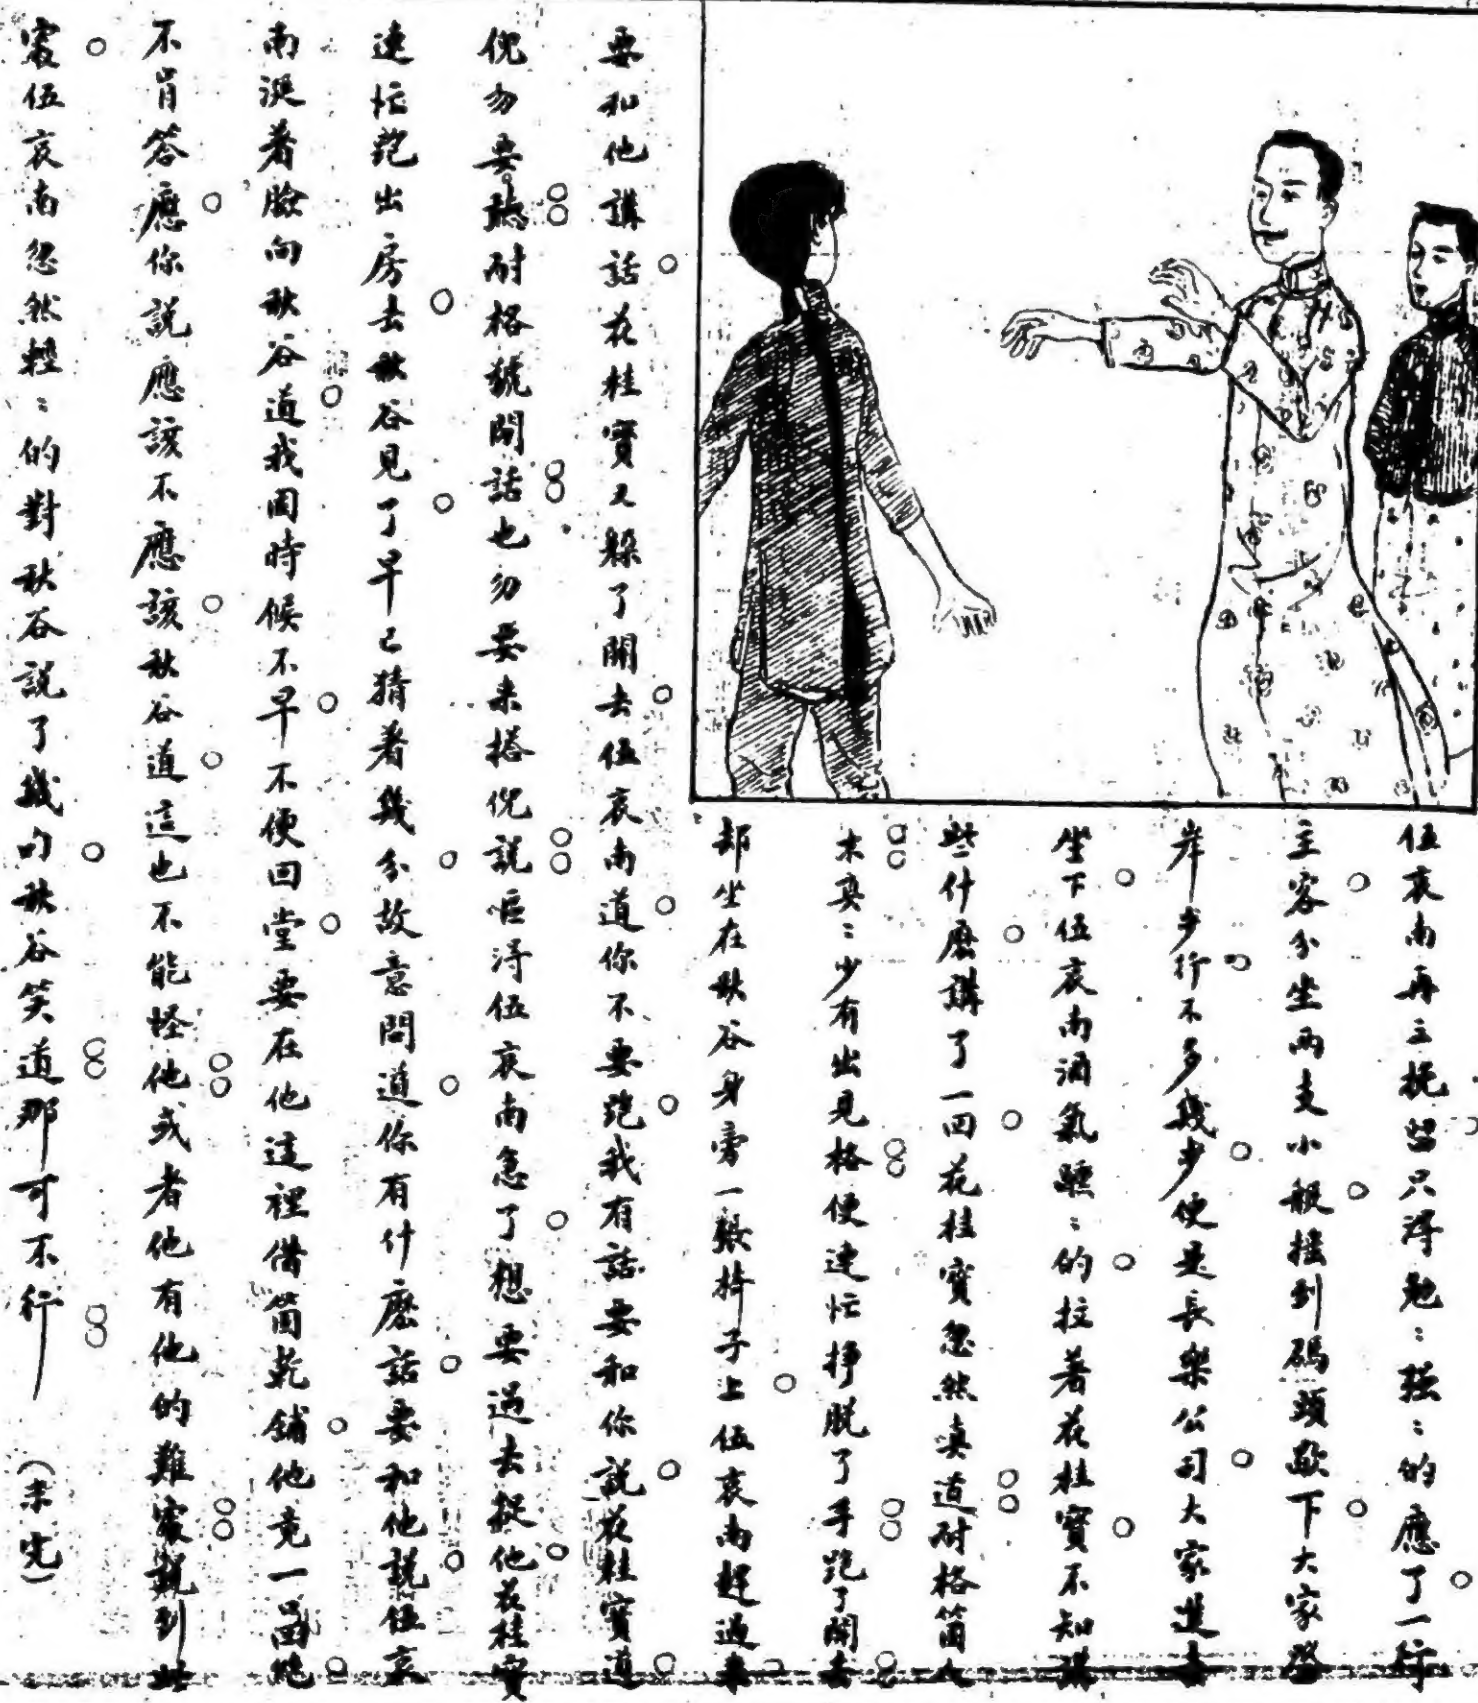 伍哀南再三挽留只得勉〻强〻的應了一行
主客分坐兩支小艇搖到碼頭歇下大家登
岸步行不多幾步便是長樂公司大家進去
坐下伍哀南酒氣醺〻的拉著花桂寶不知講
些什麽講了一回花桂寶忽然嗔道耐格箇人
木真〻少有出見格便連忙掙脱了手跑了開去
却坐在秋谷身旁一張椅子上伍哀南趕過來
要和他講話花桂寶又躲了開去伍哀南道你不要跑我有話要和你説花桂寶道
倪勿要聽耐格號閒話也勿要來搭倪説嘔得伍哀南急了想要過去捉他花桂寶
連忙跑出房去秋谷見了早已猜着幾分故意問道你有什麽話要和他説伍哀
南涎着臉向秋谷道我因時候不早不便回堂要在他這裡借箇乾鋪他竟一口
不肯答應你説應該不應該秋谷道這也不能怪他或者他有他的難處説到此
處伍哀南忽然輕〻的對秋谷説了幾句秋谷笑道那可不行
(未完)